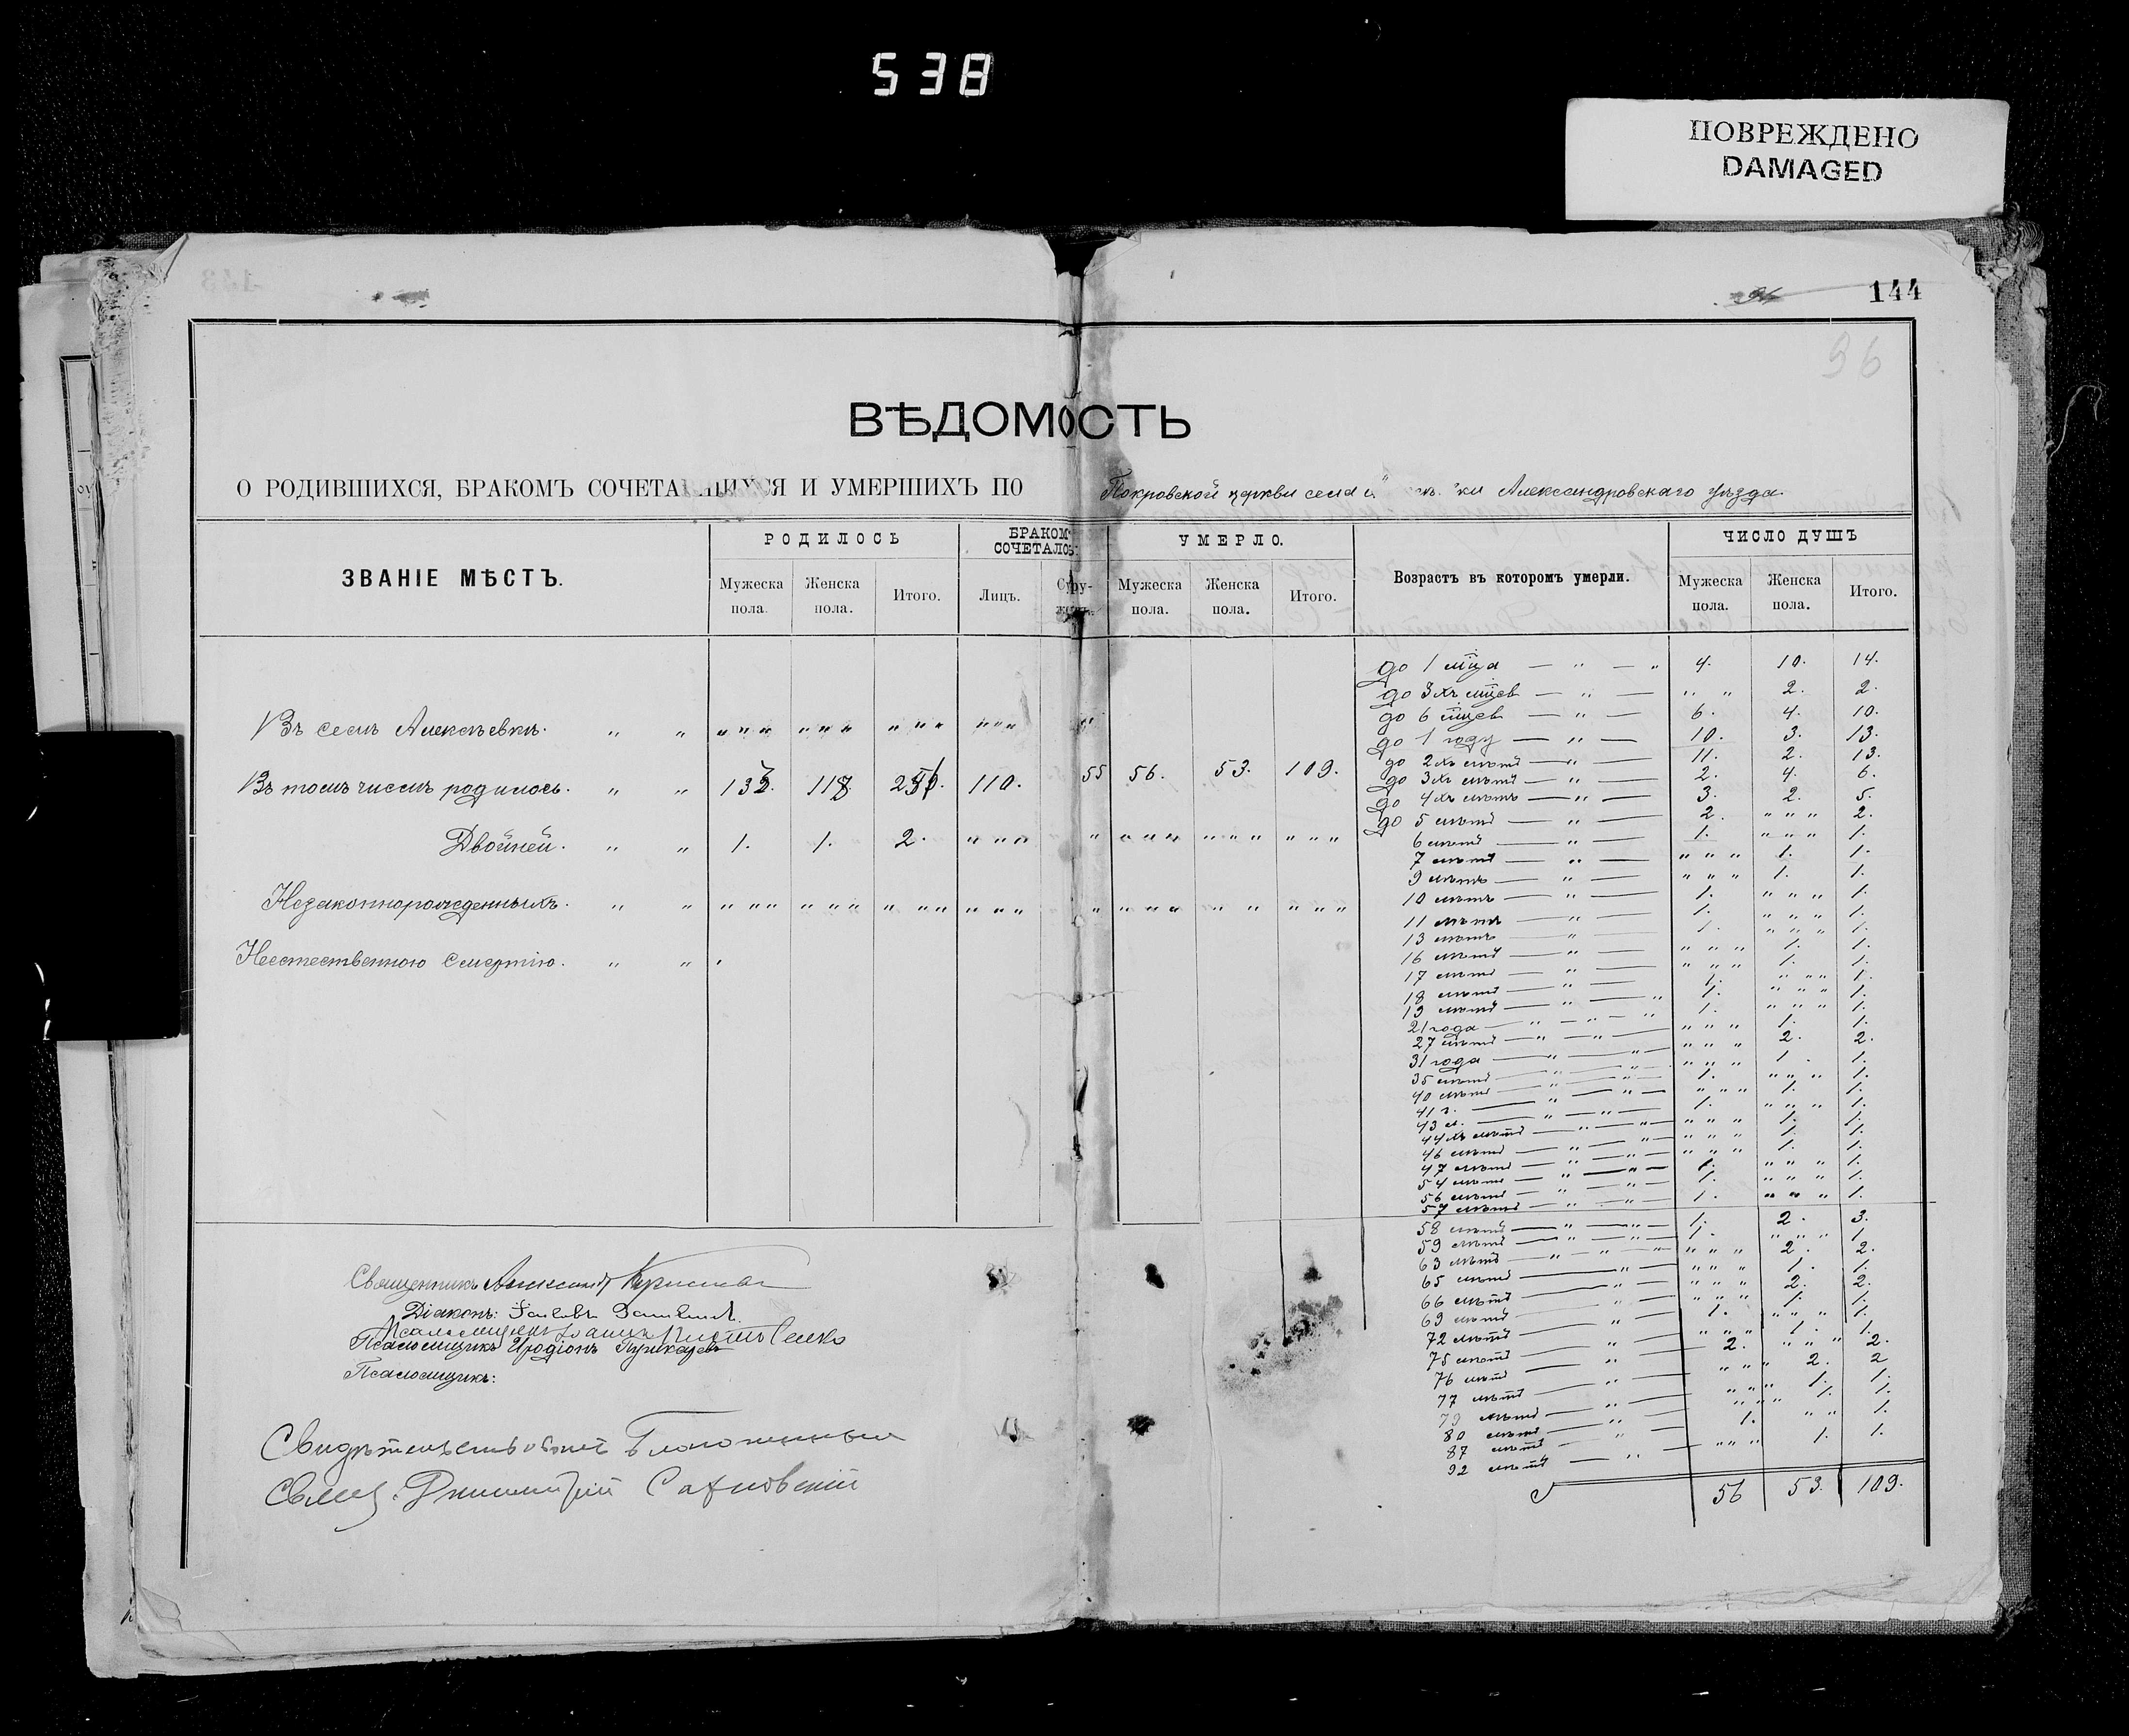 538
ПОВРЕЖДЕНО
DAMAGED
144
96
ВѢДОМОСТЬ
О РОДИВШИХСЯ, БРАКОМЪ СОЧЕТА ШИХСЯ И УМЕРШИХЪ ПО Покровской церкви села Александровскаго уѣзда.
ЗВАНІЕ МѢСТЪ. РОДИЛОСЬ БРАКОМ СОЧЕТАЛОС УМЕРЛО. Возрастъ въ которомъ умерли. ЧИСЛО ДУШЪ
Мужеска пола. Женска пола. Итого. Лицъ. Мужеска пола. Женска пола. Итого. Мужеска пола. Женска пола. Итого.
до 1 мца — „ — „ 4. 10. 14.
до 3хъ мцев — „ — „ „ 2. 2.
до 6 мцев — „ — 6. 4. 10.
Въ селѣ Алексѣевкѣ. „ „ „ „ „ „ „ „ „ „ „ „ „ „ „
до 1 году — „ — 10. 3. 13.
до 2хъ лѣтъ — „ — 11. 2. 13.
Въ томъ числѣ родилось. „ „ 110. 55 56. 53. 109.
до 3хъ лѣтъ — „ — 2. 4. 6.
до 4хъ лѣтъ — „ — 3. 2. 5.
до 5 лѣтъ — „ — 2. „ „ „ 2.
Двойней. „ „ 1. 1. 2. „ „ „ „ „ „ „ „ „ „ „ „ „
6 лѣтъ — „ — 1. „ „ „ 1.
7 лѣтъ — „ — „ „ „ 1. 1.
9 лѣтъ — „ — „ „ „ 1. 1.
Незаконнорожденныхъ. „ „ „ „ „ „ „ „ „ „ „ „ „ „ „ „ „ „ „ „ „ „ „
10 лѣтъ — „ — 1. „ „ „ 1.
11 лѣтъ — „ — 1. „ „ „ 1.
13 лѣтъ — „ — 1. „ „ „ 1.
Неестественною смертію. „ „
16 лѣтъ — „ — „ „ „ 1. 1.
17 лѣтъ — „ — „ „ „ 1. 1.
18 лѣтъ — „ — 1. „ „ „ 1.
19 лѣтъ — „ — „ 1. „ „ „ 1.
21 года — „ — „ — „ 1. „ „ „ 1.
27 лѣтъ — „ — „ — „ „ „ 1. 1.
31 года — „ — „ — „ „ „ 2. 2.
35 лѣтъ — „ — „ — „ „ „ 1. 1.
40 лѣтъ — „ — „ — 1. „ „ „ 1.
41 г. — „ — „ — „ „ „ 1. 1.
43 л. — „ — „ — 1. „ „ „ 1.
44хъ лѣтъ — „ — „ — „ „ „ 1. 1.
46 лѣтъ — „ — „ — „ „ „ 1. 1.
47 лѣтъ — „ — „ — „ „ „ 1. 1.
54 лѣтъ — „ — „ — 1. „ „ „ 1.
56 лѣтъ — „ — „ — 1. „ „ „ 1.
57 лѣтъ — „ — „ — 1. „ „ „ 1.
58 лѣтъ — „ — „ — 1. 2. 3.
59 лѣтъ — „ — „ — 1. „ „ „ 1.
63 лѣтъ — „ — „ — „ „ „ „ 2. 2.
65 лѣтъ — „ — „ „ „ 1. 1.
66 лѣтъ — „ — „ „ „ 2. 2.
69 лѣтъ — „ — „ „ „ 1. 1.
72 лѣтъ — „ — 1. „ „ „ 1.
75 лѣтъ — „ — „ „ „ 1. 1.
76 лѣтъ — „ — 2. „ „ „ 2.
77 лѣтъ — „ — „ „ „ 2. 2
79 лѣтъ — „ — „ „ „ 1. 1.
80 лѣтъ — „ — „ „ „ 1. 1.
87 лѣтъ — „ — 1. „ „ 1.
92 лѣтъ — „ — „ „ „ 1. 1.
56 53. 109.
Священникъ
Діаконъ:
Псаломщикъ
Псаломщикъ Иродіонъ Пушкаревъ
Псаломщикъ:
Свидѣтельствовалъ Благочинный
Свящ. Димитрій